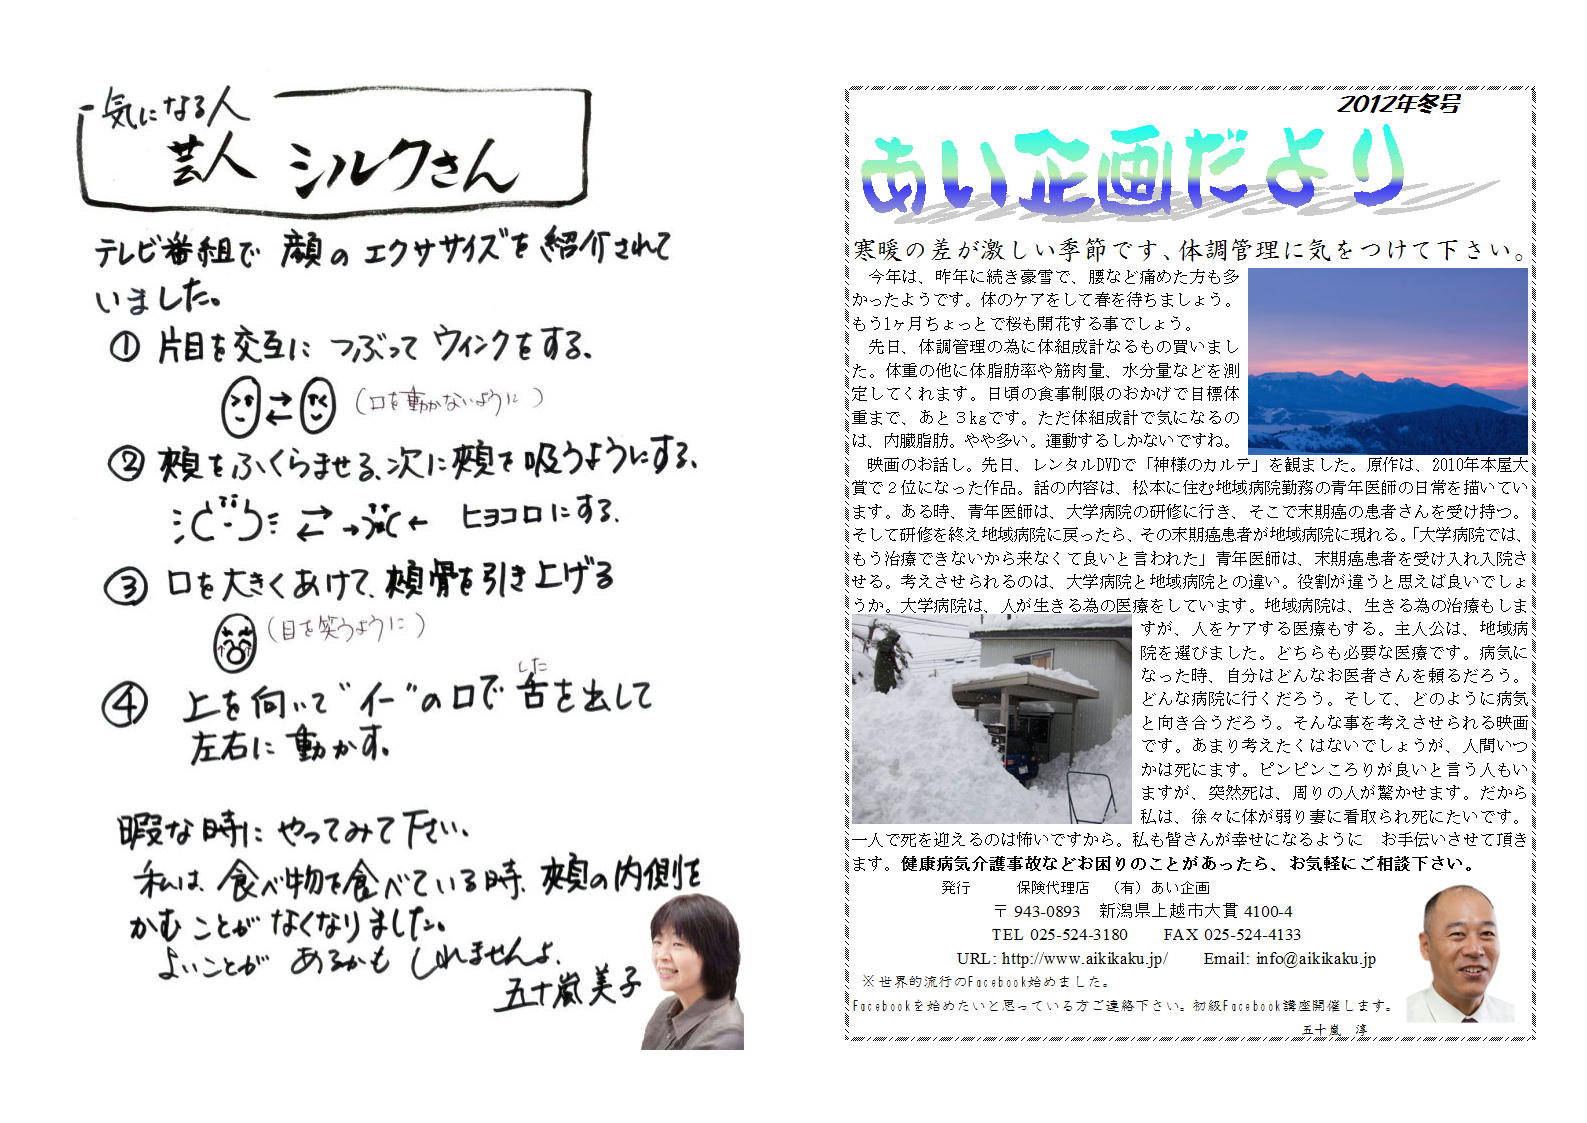 気になる人
芸人 シルクさん
テレビ番組で 顔の エクササイズを 紹介されて
いました。
① 片目を交互に つぶって ウィンクをする、
(口を動かないように)
② 頬をふくらませる、次に頬を吸うようにする、
ヒヨコ口にする、
③ 口を大きくあけて、頬骨を引き上げる
(目を笑うように)
した
④ 上を向いて"イー"の口で舌を出して
左右に動かす。
暇な時に やってみて下さい、
私は、食べ物を食べている時、頬の内側を
かむことが なくなりました。
よいことが あるかも しれませんよ、
五十嵐美子
2012年冬号
あい企画だより
寒暖の差が激しい季節です、体調管理に気をつけて下さい。
今年は、昨年に続き豪雪で、腰など痛めた方も多
かったようです。体のケアをして春を待ちましょう。
もう1ヶ月ちょっとで桜も開花する事でしょう。
先日、体調管理の為に体組成計なるもの買いまし
た。体重の他に体脂肪率や筋肉量、水分量などを測
定してくれます。日頃の食事制限のおかげで目標体
重まで、あと３kgです。ただ体組成計で気になるの
は、内臓脂肪。やや多い。運動するしかないですね。
映画のお話し。先日、レンタルDVDで「神様のカルテ」を観ました。原作は、2010年本屋大
賞で２位になった作品。話の内容は、松本に住む地域病院勤務の青年医師の日常を描いてい
ます。ある時、青年医師は、大学病院の研修に行き、そこで末期癌の患者さんを受け持つ。
そして研修を終え地域病院に戻ったら、その末期癌患者が地域病院に現れる。「大学病院では、
もう治療できないから来なくて良いと言われた」青年医師は、末期癌患者を受け入れ入院さ
せる。考えさせられるのは、大学病院と地域病院との違い。役割が違うと思えば良いでしょ
うか。大学病院は、人が生きる為の医療をしています。地域病院は、生きる為の治療もしま
すが、人をケアする医療もする。主人公は、地域病
院を選びました。どちらも必要な医療です。病気に
なった時、自分はどんなお医者さんを頼るだろう。
どんな病院に行くだろう。そして、どのように病気
と向き合うだろう。そんな事を考えさせられる映画
です。あまり考えたくはないでしょうが、人間いつ
かは死にます。ピンピンころりが良いと言う人もい
ますが、突然死は、周りの人が驚かせます。だから
私は、徐々に体が弱り妻に看取られ死にたいです。
一人で死を迎えるのは怖いですから。私も皆さんが幸せになるように　お手伝いさせて頂き
ます。健康病気介護事故などお困りのことがあったら、お気軽にご相談下さい。
発行　　　保険代理店　（有）あい企画
〒943-0893　新潟県上越市大貫 4100-4
TEL 025-524-3180　　FAX 025-524-4133
URL: http://www.aikikaku.jp/　　Email: info@aikikaku.jp
※世界的流行のFacebook始めました。
Facebookを始めたいと思っている方ご連絡下さい。初級Facebook講座開催します。
五十嵐　淳